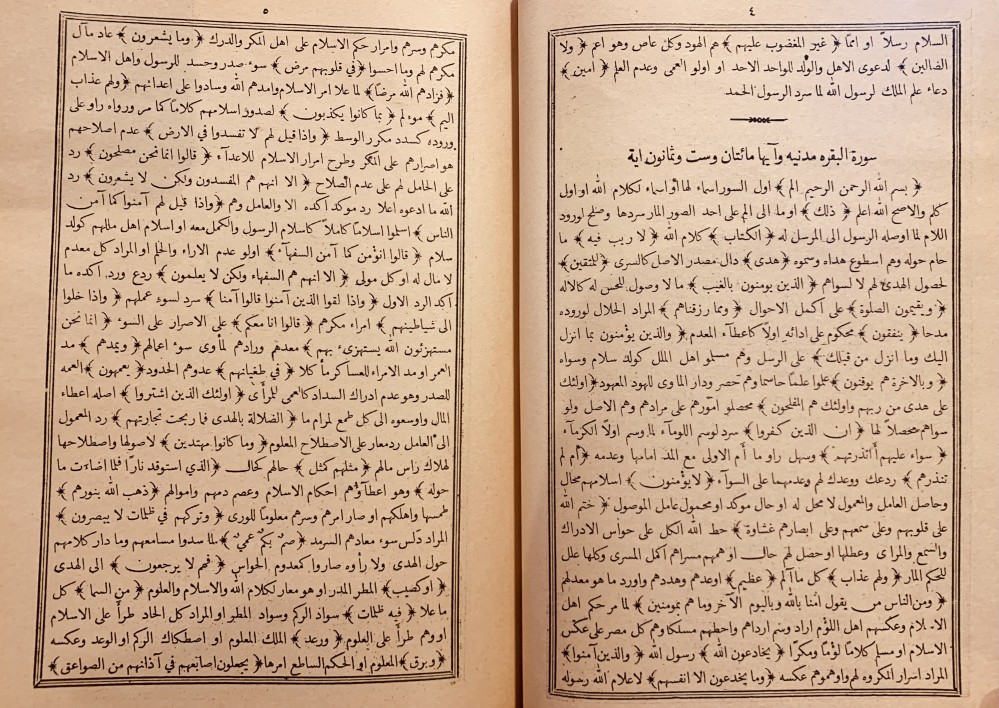 ٤
السلام رسلاً او امّا ﴿ غير المغضوب عليهم ﴾ هم الهود وكل عاص وهو اعم ﴿ ولا
الضالين ﴾ لدعوى الاهل والولد للواحد الاحد او اولو العمى وعدم العلم ﴿ امين ﴾
دعاء علم الملك لرسول الله لما سرد الرسول الحمد
سورة البقره مدنيه وآيها مائتان وست وثمانون اية
﴿ بسم الله الرحمن الرحيم الم ﴾ اول السور اسماء لها او اسماء لكلام الله او اول
كلم والاصح الله اعلم ﴿ ذلك ﴾ اوما الى الم على احد الصور المار سردها وصلح لورود
اللام لما اوصله الرسول الى المرسل له ﴿ الكتاب ﴾ كلام الله ﴿ لا ريب فيه ﴾ ما
حام حوله وهم اسطوع هداه وسموه ﴿ هدى ﴾ دال مصدر الاصل كالسرى ﴿ للمتقين ﴾
لحصول الهدى لهم لا لسواهم ﴿ الذين يومنون بالغيب ﴾ ما لا وصول للحس له كالاله
﴿ ويقيمون الصلوة ﴾ على أكمل الاحوال ﴿ ومما رزقناهم ﴾ المراد الحلال لوروده
مدحا ﴿ ينفقون ﴾ محكوم على ادائه اولاً كاعطاء المعدم ﴿ والذين يؤمنون بما انزل
اليك وما انزل من قبلك ﴾ على الرسل وهم مسلمو اهل الملل كولد سلام وسواه
﴿ وبالاخرة هم يوقنون ﴾ علموا علما حاسما وهم حصر ودار الماوى للهود المعهود ﴿ اولئك
على هدى من ربهم واولئك هم المفلحون ﴾ محصلو امورهم على مرادهم وهم الاصل ولو
سواهم محصلاً لها ﴿ ان الذين كفروا ﴾ سرد لوسم اللومآء لما وسم اولاً الكرمآء
﴿ سواء عليهم أأنذرتهم ﴾ وسهل راو ما أم الاولى مع المد امامها وعدمه ﴿ أم لم
تنذرهم ﴾ ردعك ووعدك لهم وعدمهما على السوآء ﴿ لا يؤمنون ﴾ اسلامهم محال
وحاصل العامل والمعمول لا محل له او حال موكد او محمول عامل الموصول ﴿ ختم الله
على قلوبهم وعلى سمعهم وعلى ابصارهم غشاوة ﴾ حط الله الكل على حواس الادراك
والسمع والمراى وعطلها او حصل لهم حال او هممهم مسراهم أكمل المسرى وكلها علل
للحكم المار ﴿ ولهم عذاب ﴾ كل ما آلم ﴿ عظيم ﴾ اوعدهم وهددهم واورد ما هو معد لهم
﴿ ومن الناس من يقول امنا بالله وباليوم الآخر وما هم بمومنين ﴾ لما مر حكم اهل
الاسلام وعكسهم اهل اللؤم اراد وسم ارداهم واحطهم مسلكا وهم كل مصر على عكس
الاسلام او مسلم كلامًا لؤمًا ومكرًا ﴿ يخادعون الله ﴾ رسول الله ﴿ والذين آمنوا ﴾
المراد اسرار المكروه لهم واوهموهم عكسه ﴿ وما يخدعون الا انفسهم ﴾ لاعلام الله رسوله
٥
مكرهم وسرهم وامرار حكم الاسلام على اهل المكر والدرك ﴿ وما يشعرون ﴾ عاد مآل
مكرهم لهم وما احسوا ﴿ في قلوبهم مرض ﴾ سوء صدر وحسد للرسول واهل الاسلام
﴿ فزادهم الله مرضًا ﴾ لما علا امر الاسلام وامدهم الله وسادوا على اعدائهم ﴿ ولهم عذاب
اليم ﴾ موءلم ﴿ بما كانوا يكذبون ﴾ لصدور اسلامهم كلامًا كما مر ورواه راو على
وروده كسدد مكرر الوسط ﴿ واذا قيل لهم لا تفسدوا في الارض ﴾ عدم اصلاحهم
هو اصرارهم على المكر وطرح امرار الاسلام للاعدآء ﴿ قالوا انما نحن مصلحون ﴾ رد
على الحامل لهم على عدم الصلاح ﴿ الا انهم هم المفسدون ولكن لا يشعرون ﴾ رد
الله ما ادعوه اعلا رد موكد آكده الا والعامل وهم ﴿ واذا قيل لهم آمنوا كما آمن
الناس ﴾ اسلموا اسلامًا كاملاً كاسلام الرسول والكمل معه او اسلام اهل مللهم كولد
سلام ﴿ قالوا انؤمن كما آمن السفهآء ﴾ اولو عدم الاراء والحلم او المراد كل معدم
لا مال له او كل مولى ﴿ الا انهم هم السفهاء ولكن لا يعلمون ﴾ ردع ورد آكده ما
آكد الرد الاول ﴿ واذا لقوا الذين آمنوا قالوا آمنا ﴾ سرد لسوء عملهم ﴿ واذا خلوا
الى شياطينهم ﴾ امراء مكرهم ﴿ قالوا انا معكم ﴾ على الاصرار على السوء ﴿ انما نحن
مستهزئون الله يستهزىء بهم ﴾ معدهم ورادهم لمأوى سوء اعمالهم ﴿ ويمدهم ﴾ مد
العمر او مد الامراء للعساكر ما كلا ﴿ في طغيانهم ﴾ عدوهم الحدود ﴿ يعمهون ﴾ العمه
للصدر وهو عدم ادراك السداد كالعمى للمرأى ﴿ اولئك الذين اشتروا ﴾ اصله اعطاء
المال واوسعوه الى كل طمع لمرام ما ﴿ الضلالة بالهدى فما ربحت تجارتهم ﴾ رد المعمول
الى العامل ردمعار على الاصطلاح المعلوم ﴿ وما كانوا مهتدين ﴾ لاصولها واصطلاحها
لهلاك راس مالهم ﴿ مثلهم كمثل ﴾ حالهم كحال ﴿ الذي استوقد نارًا فلما اضاءت ما
حوله ﴾ وهو اعطاؤهم احكام الاسلام وعصم دمهم واموالهم ﴿ ذهب الله بنورهم ﴾
طمسها واهلكهم او صار امرهم وسرهم معلومًا للورى ﴿ وتركهم في ظلمات لا يبصرون ﴾
المراد دلس سوء معادهم السرمد ﴿ صم بكم عمي ﴾ لما سدوا مسامعهم وما دار كلامهم
حول الهدى ولا رأوه صاروا كمعدوم الحواس ﴿ فهم لا يرجعون ﴾ الى الهدى
﴿ او كصيب ﴾ المطر المدر او هو معار لكلام الله والاسلام والعلوم ﴿ من السما ﴾ كل
ما علا ﴿ فيه ظلمات ﴾ سواد الركم وسواد المطر او المراد كل الحاد طرأ على الاسلام
او وهم طرأ على العلوم ﴿ ورعد ﴾ الملك المعلوم او اصطكاك الركم او الوعد وعكسه
﴿ وبرق ﴾ المعلوم او الحكم الساطع امرها ﴿ يجعلون اصابعهم في آذانهم من الصواعق ﴾